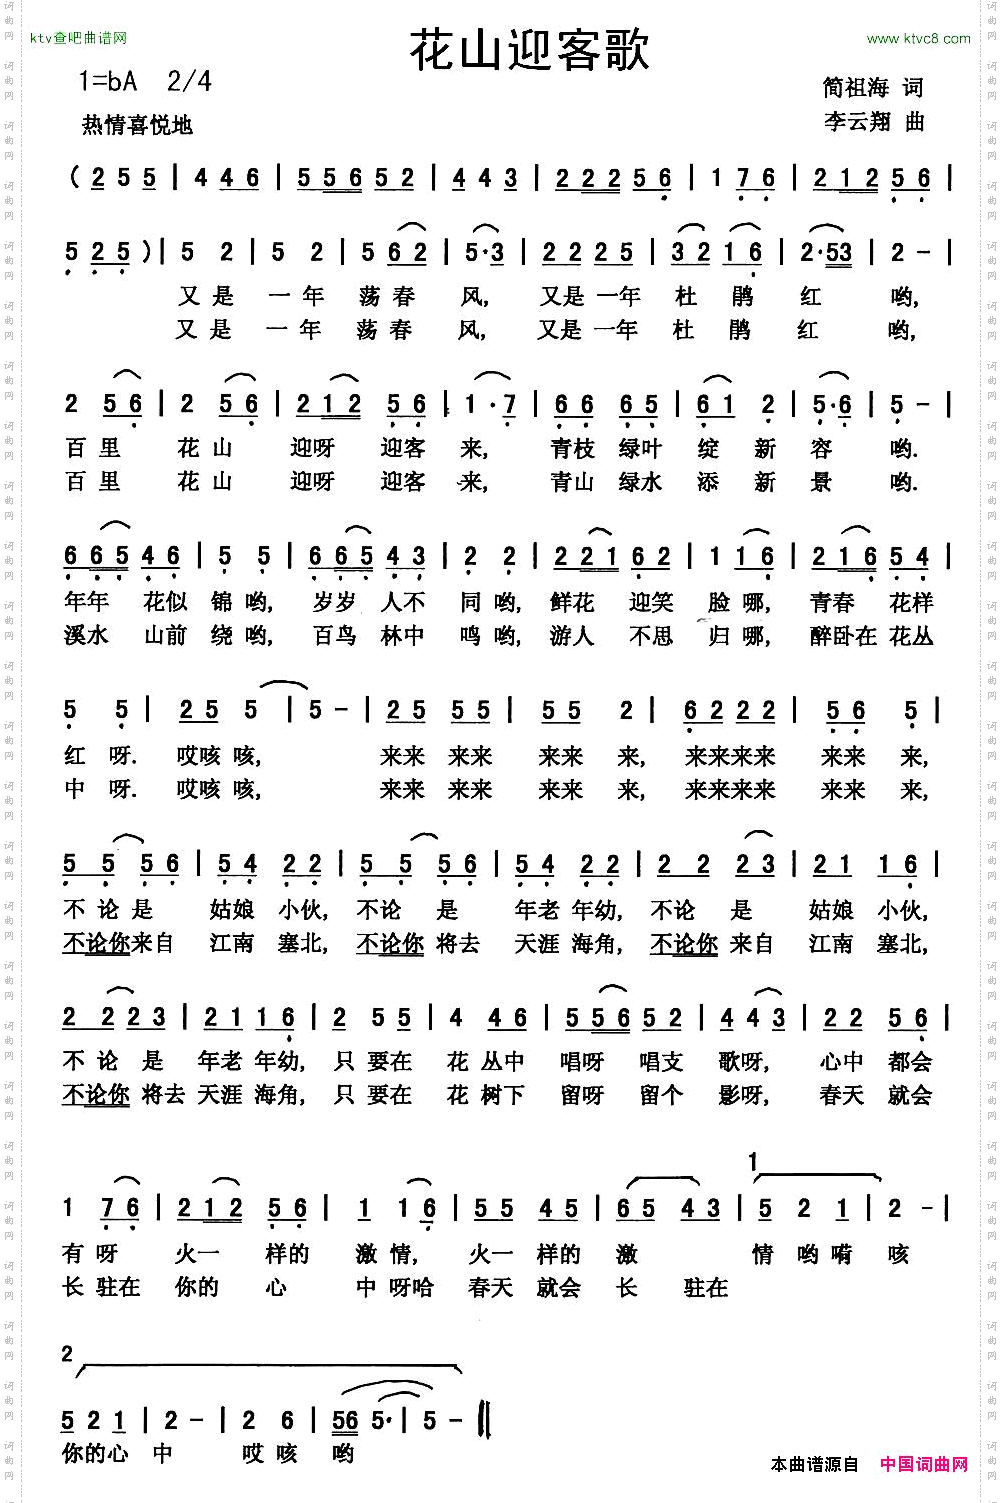 ktv查吧曲谱网
花山迎客歌
www.ktvc8.com
1=bA 2/4
简祖海 词
热情喜悦地
李云翔 曲
( 2 5 5 | 4 4 6 | 5 5 6 5 2 | 4 4 3 | 2 2 2 5 6 | 1 7 6 | 2 1 2 5 6 |
5 2 5 ) | 5 2 | 5 2 | 5 6 2 | 5·3 | 2 2 2 5 | 3 2 1 6 | 2·5 3 | 2 - |
又是 一年 荡春 风, 又是一年 杜 鹃 红 哟,
又是 一年 荡春 风, 又是一年 杜 鹃 红 哟,
2 5 6 | 2 5 6 | 2 1 2 5 6 | 1·7 | 6 6 6 5 | 6 1 2 | 5·6 | 5 - |
百里 花山 迎呀 迎客 来, 青枝 绿叶 绽 新 容 哟.
百里 花山 迎呀 迎客 来, 青山 绿水 添 新 景 哟.
6 6 5 4 6 | 5 5 | 6 6 5 4 3 | 2 2 | 2 2 1 6 2 | 1 1 6 | 2 1 6 5 4 |
年年 花似 锦哟, 岁岁 人不 同哟, 鲜花 迎笑 脸哪, 青春 花样
溪水 山前 绕哟, 百鸟 林中 鸣哟, 游人 不思 归哪, 醉卧在 花丛
5 5 | 2 5 5 | 5 - | 2 5 5 5 | 5 5 2 | 6 2 2 2 | 5 6 5 |
红呀. 哎咳咳, 来来 来来 来来 来, 来来来来 来来 来,
中呀. 哎咳咳, 来来 来来 来来 来, 来来来来 来来 来,
5 5 5 6 | 5 4 2 2 | 5 5 5 6 | 5 4 2 2 | 2 2 2 3 | 2 1 1 6 |
不论是 姑娘 小伙, 不论 是 年老 年幼, 不论 是 姑娘 小伙,
不论你来自 江南 塞北, 不论你 将去 天涯 海角, 不论你 来自 江南 塞北,
2 2 2 3 | 2 1 1 6 | 2 5 5 | 4 4 6 | 5 5 6 5 2 | 4 4 3 | 2 2 5 6 |
不论 是 年老 年幼, 只 要在 花 丛中 唱呀 唱支 歌呀, 心中 都会
不论你 将去 天涯 海角, 只 要在 花 树下 留呀 留个 影呀, 春天 就会
1
1 7 6 | 2 1 2 5 6 | 1 1 6 | 5 5 4 5 | 6 5 4 3 | 5 2 1 | 2 - |
有呀 火一 样的 激情, 火一 样的 激 情哟嗬 咳
长驻在 你的 心 中呀哈 春天 就会 长 驻在
2
5 2 1 | 2 - | 2 6 | 5 6 5· | 5 - ‖
你的心 中 哎 咳 哟
本曲谱源自 中国词曲网